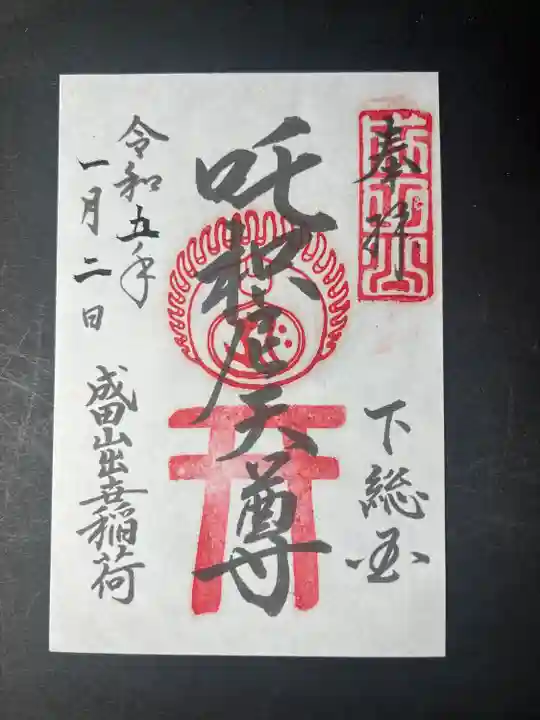 奉拝
下総国
吒枳尼天尊
令和五年
一月二日
成田山出世稲荷
成田山